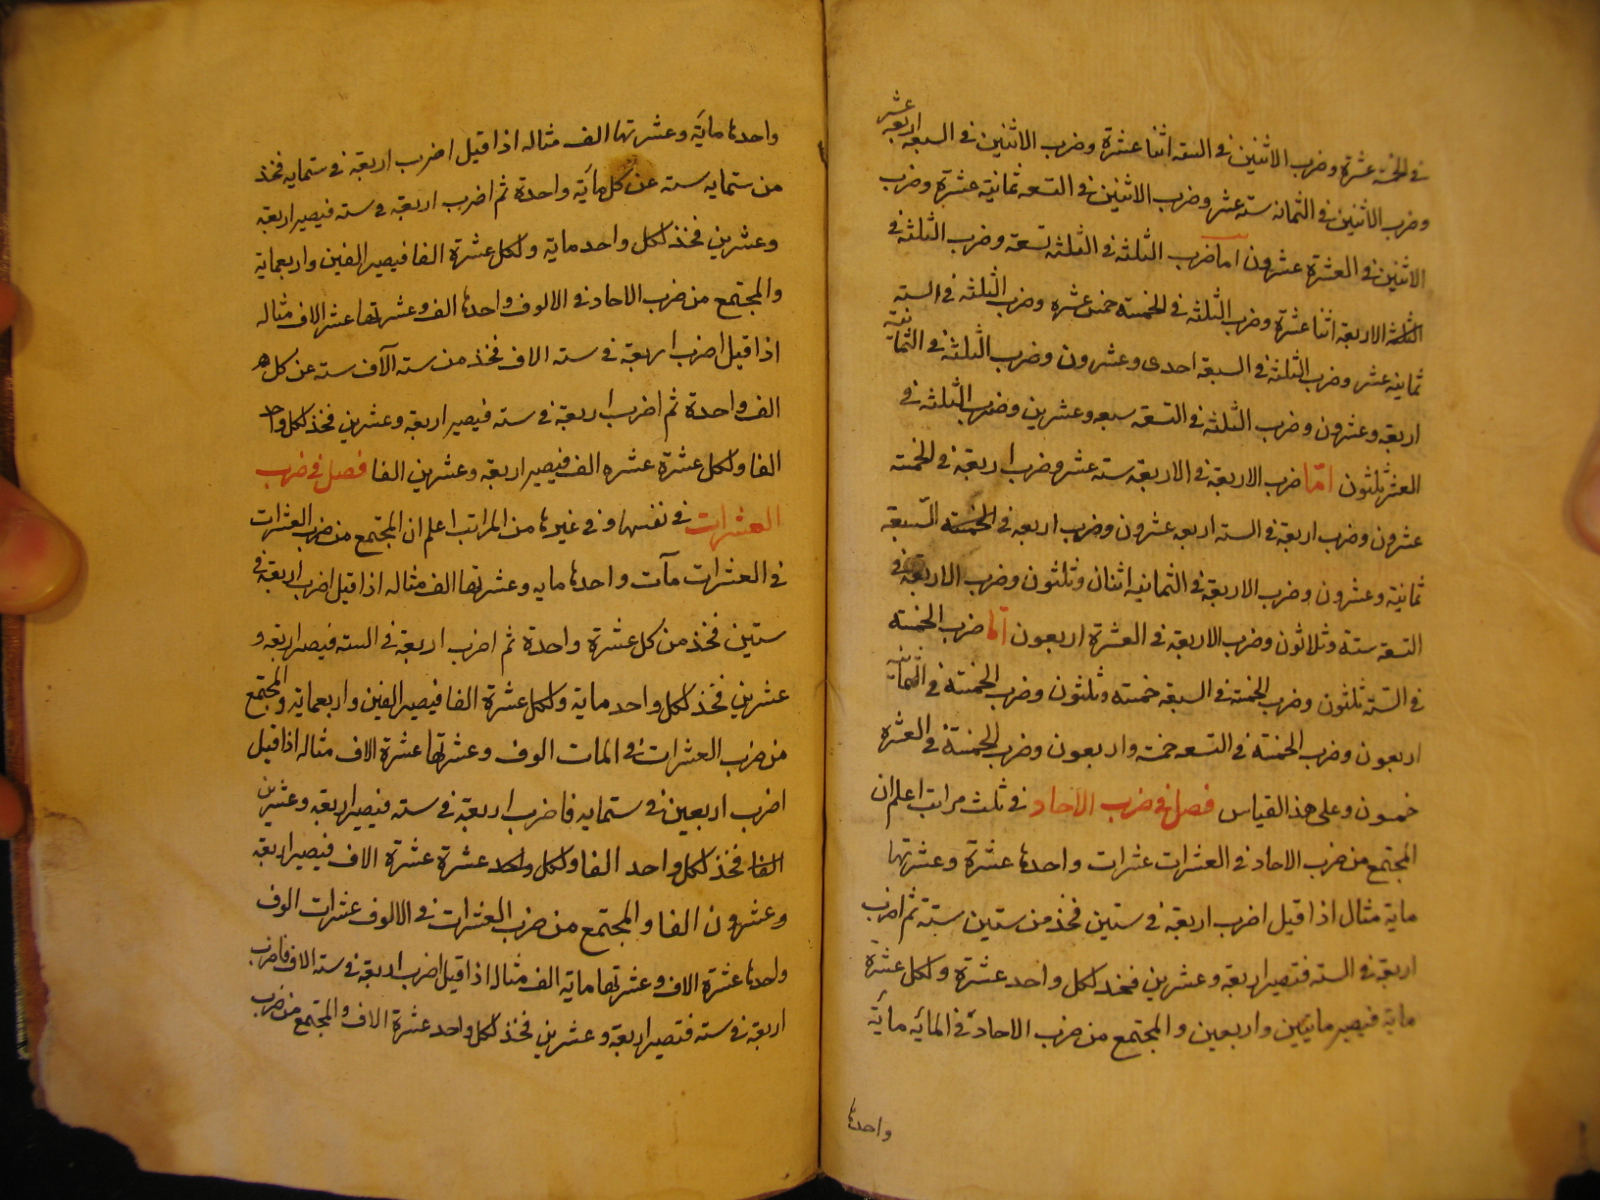 في الخمسة عشرة وضرب الاثنين في الستة اثنا عشرة وضرب الاثنين في السبعة اربعة عشر
وضرب الاثنين في الثمانية ستة عشر وضرب الاثنين في التسعة ثمانية عشرة وضرب
الاثنين في العشرة عشرون اما ضرب الثلثة في الثلثة تسعة وضرب الثلثة في
الثلثة الاربعة اثنا عشرة وضرب الثلثة في الخمسة خمس عشرة وضرب الثلثة في الستة
ثمانية عشر وضرب الثلثة في السبعة احدى وعشرون وضرب الثلثة في الثمانية
اربعة وعشرون وضرب الثلثة في التسعة سبعه وعشرين وضرب الثلثة في
العشر ثلثون امّا ضرب الاربعة في الاربعة ستة عشر وضرب اربعة في الخمسة
عشرون وضرب اربعة في الستة اربعة عشرون وضرب اربعة في الخمسة السّبعة
ثمانية وعشرون وضرب الاربعة في الثمانية اثنان وثلثون وضرب الاربعة في
التسعة ستة وثلاثون وضرب الاربعة في العشرة اربعون امّا ضرب الخمسة
في الستة ثلثون وضرب الخمسة في السبعة خمسة وثلثون وضرب الخمسة في الثمانية
اربعون وضرب الخمسة في التسعة خمسة واربعون وضرب الخمسة في العشرة
خمسون وعلى هذا القياس فصل في ضرب الآحاد في ثلث مراتب اعلم ان
المجتمع من ضرب الاحاد في العشرات عشرات واحدها عشرة وعشرتها
ماية مثال اذا قيل اضرب اربعة في ستين فخذ من ستين ستة ثم اضرب
اربعة في الستة فتصير اربعة وعشرين فخذ لكل واحد عشرة ولكل عشرة
ماية فيصير مايتين واربعين والمجتمع من ضرب الاحاد في المائة مائة
واحدها
واحدها ماية وعشرتها الف مثاله اذا قيل اضرب اربعة في ستمايه فخذ
من ستمايه ستة عن كل ماية واحدة ثم اضرب اربعة في ستة فيصير اربعة
وعشرين فخذ لكل واحد ماية ولكل عشرة الفا فيصير الفين واربعماية
والمجتمع من ضرب الاحاد في الالوف واحدها الف وعشرتها عشر الاف مثاله
اذا قيل اضرب اربعة في ستة الاف فخذ من ستة آلاف ستة عن كل
الف واحدة ثم اضرب اربعة في ستة فيصير اربعة وعشرين فخذ لكل واحد
الفا ولكل عشرة عشره الف فيصير اربعة وعشرين الفا فصل في ضرب
العشرات في نفسها وفي غيرها من المراتب اعلم ان المجتمع من ضرب العشرات
في العشرات مآت واحدها مايه وعشرتها الف مثاله اذا قيل اضرب اربعة في
ستين فخذ من كل عشرة واحدة ثم اضرب اربعة في الستة فيصير اربعة و
عشرين فخذ لكل واحد ماية ولكل عشرة الفا فيصير الفين واربعماية والمجتمع
من ضرب العشرات في المات الوف وعشرتها عشرة الاف مثاله اذا قيل
اضرب اربعين في ستمايه فاضرب اربعة في ستة فيصير اربعة وعشرين
الفا فخذ لكل واحد الفا ولكل واحد عشرة عشرة الاف فيصير اربعة
وعشرون الفا والمجتمع من ضرب العشرات في الالوف عشرات الوف
واحدها عشرة الاف وعشرتها ماية الف مثاله اذا قيل اضرب اربعة في ستة الاف فاضرب
اربعة في ستة فتصير اربعة وعشرين فخذ لكل واحد عشرة الاف والمجتمع من ضرب